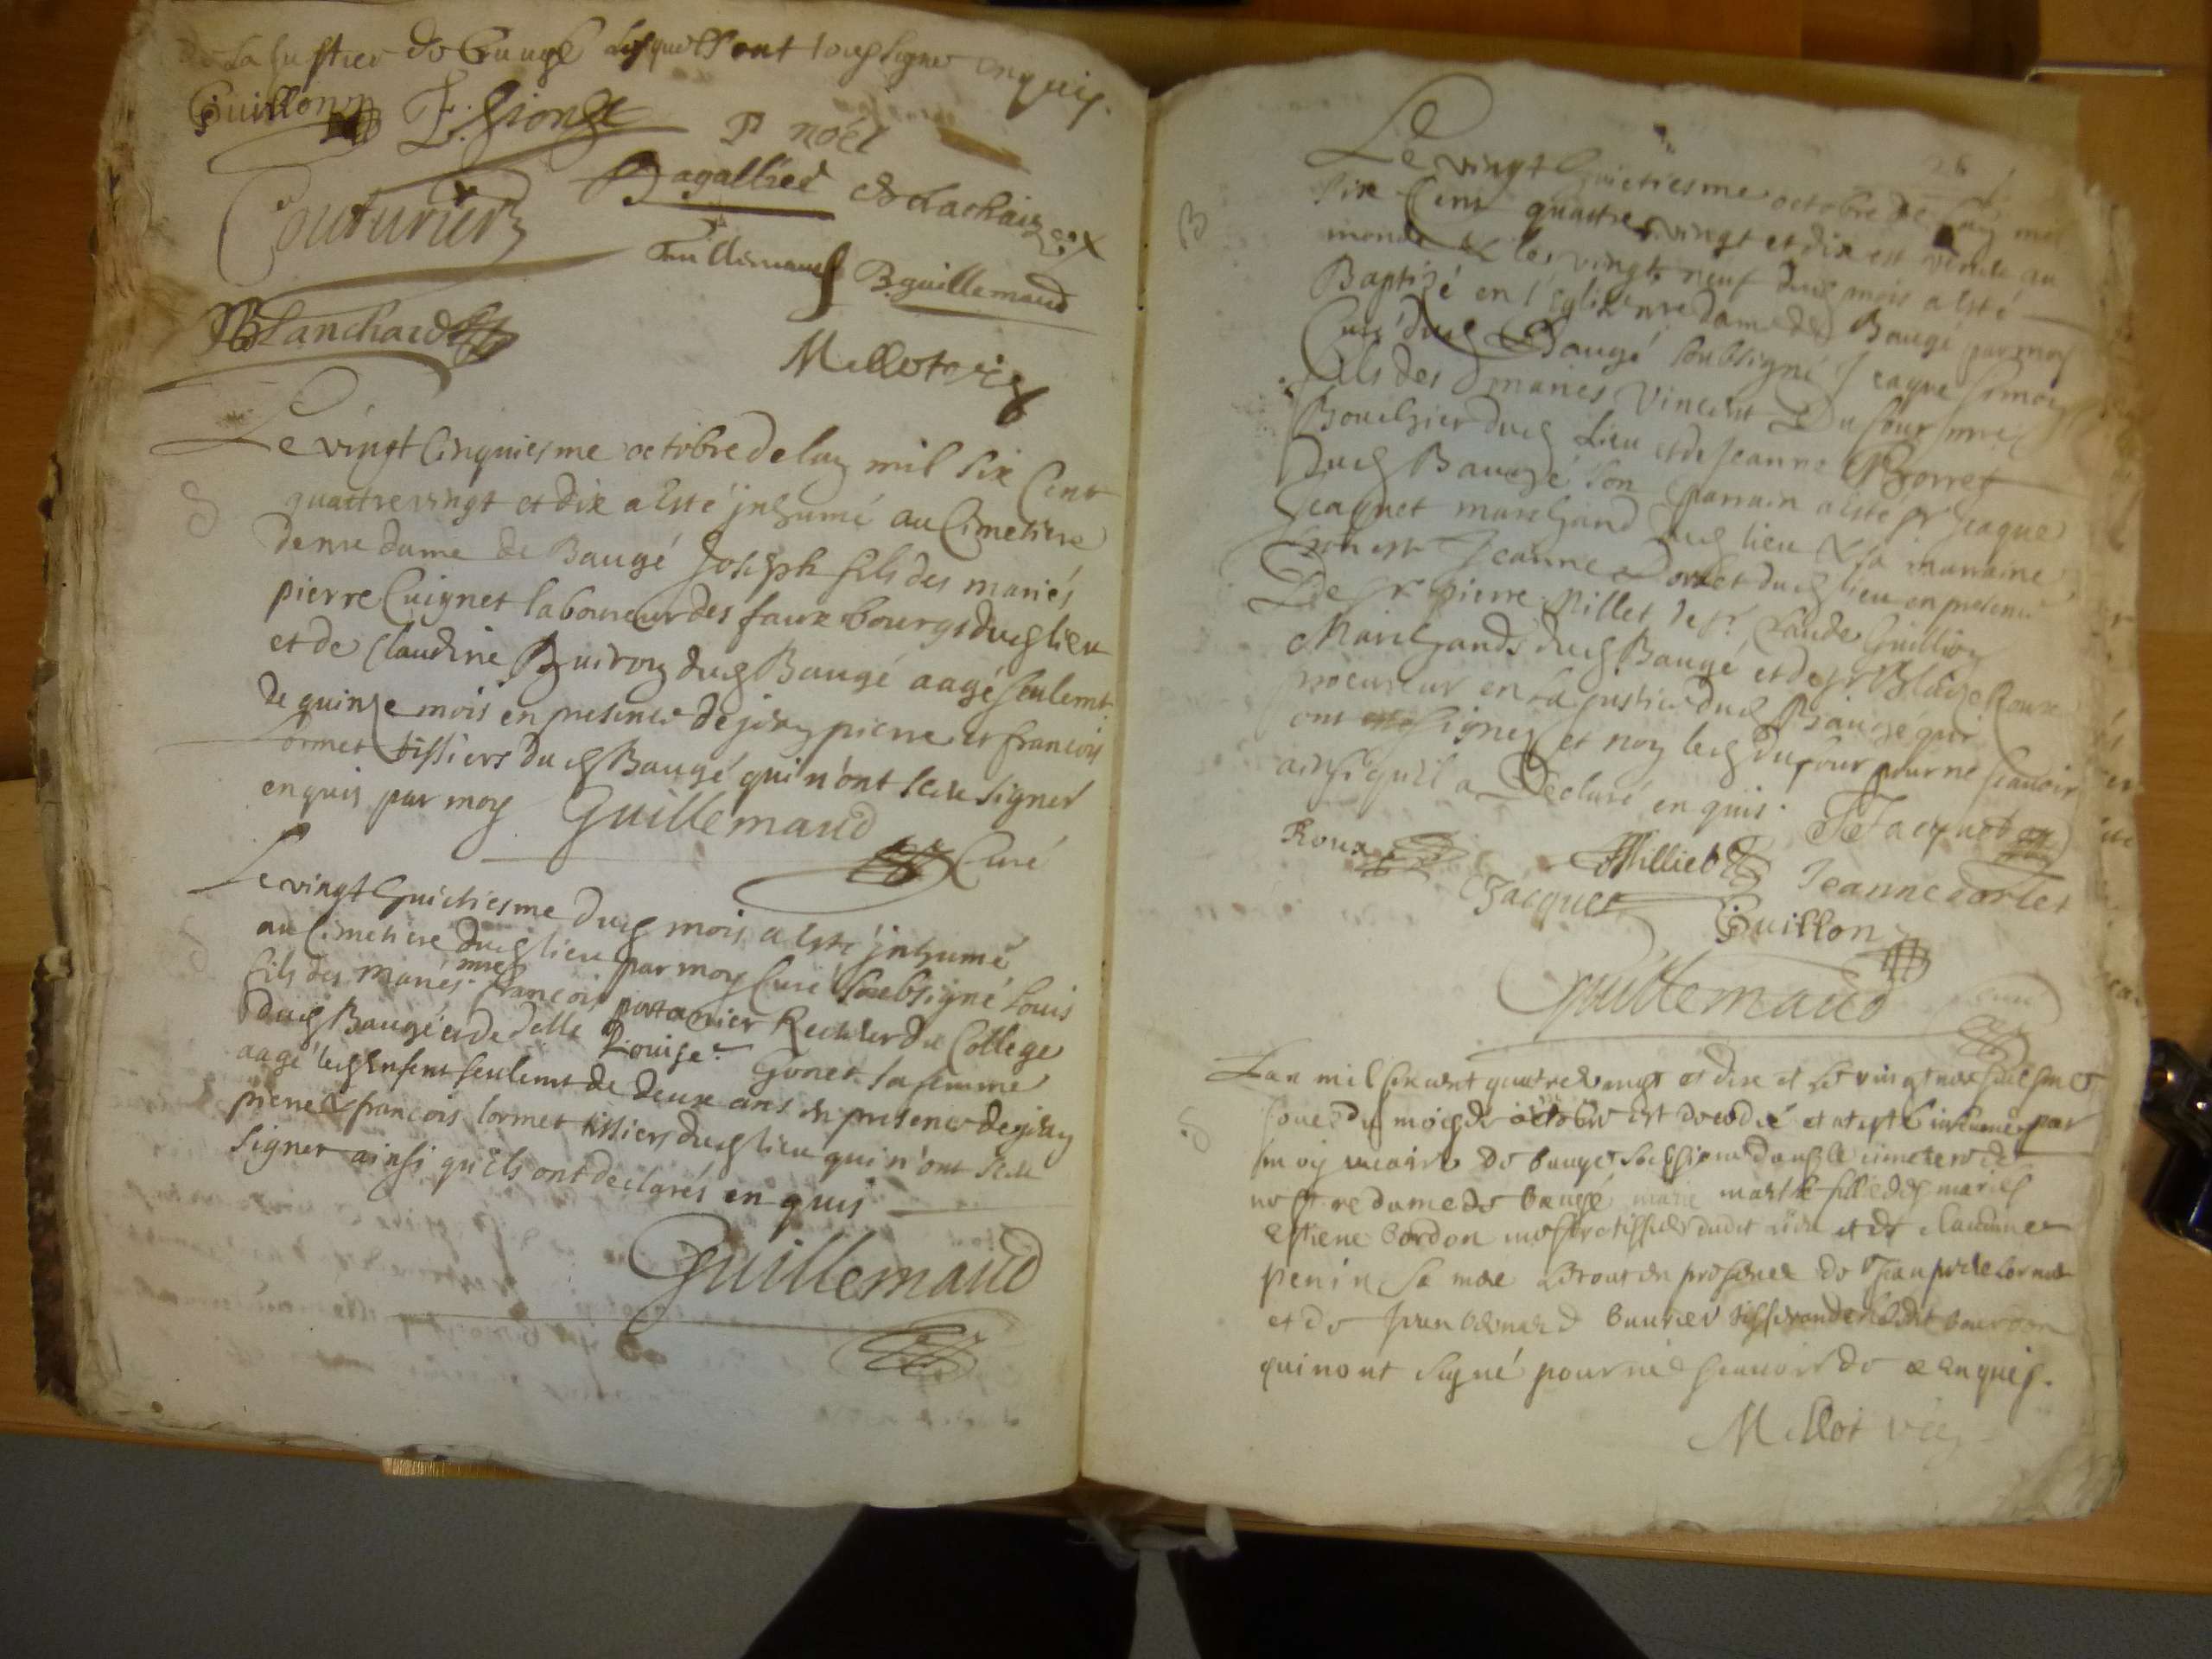 de La Justice de Baugé Lesquels ont tous signer enquis.
Guillon
P noël
Bagallier
Couturier
Guillemaud B. guillemaud
Blanchard
Millot vic
Le vingt Cinquiesme octobre de lan mil six Cent
quattre vingt et dix a esté jnhumé au Cimetiere
de nre dame de Baugé Joseph fils des mariés
pierre Cuignet laboureur des faux bourgs dud lieu
et de Claudine Buiron dud Baugé aagé seulemt
de quinze mois en presence de jean pierre et francois
Lormet tissiers dud Baugé qui n'ont sceu signer
enquis par moy Guillemaud
Curé
Le vingt huictiesme dud mois a esté jnhumé
au Cimetiere dud lieu par moy Curé soubsigné Louis
fils des mariés mre francois portanier Recteur du College
dud Baugé et de delle Louise Gonet sa femme
aagé led enfent seulemt de deux ans en presence de jean
pierre & francois lormet tissiers dud lieu qui n'ont sceu
signer ainsi qu'ils ont declarés enquis
Guillemaud
B
Le vingt huictiesme octobre de lan mil
six Cent quattre vingt et dix est venu au
monde & le vingt neuf dud mois a esté
Baptizé en l'Eglise nre dame de Baugé par moy
Curé dud Baugé soubsigné Jeaque simon
fils des mariés Vincent Dufour mre
Bouchier dud Lieu et de Jeanne Borret
dud Baugé son parrain a esté sr Jeaque
Jeaquet marchand dud lieu & sa marraine
Jeanne Dorlet dud lieu en presence
De sr pierre Nillet de sr Claude Guillion
Marchands dud Baugé et de sr Blaize Roux
procureur en La justice dud Baugé qui
ont signés et non led dufour pour ne scauoir
ainsi qu'il a Declaré enquis.
Roux Milliet J Jacquet
Jacquet Jeanne dorlet
Guillon
Guillemaud Curé
Lan mil six cent quatre vingt et dix et le vingt
jour du mois de octobre est decedé et at esté inhumé par
moy vicaire de bauge dans le cimetiere de
nostre dame de baugé marie marthe fille des mariés
estiene bordon mestre tissier dudit lieu et de claudine
penin sa mere Le tout en presence de Jean pierre lormet
et de Jean bernard buurier tisserand et ledit bourdon
qui nont signé pour ne scauoir de ce enquis.
Millot vic